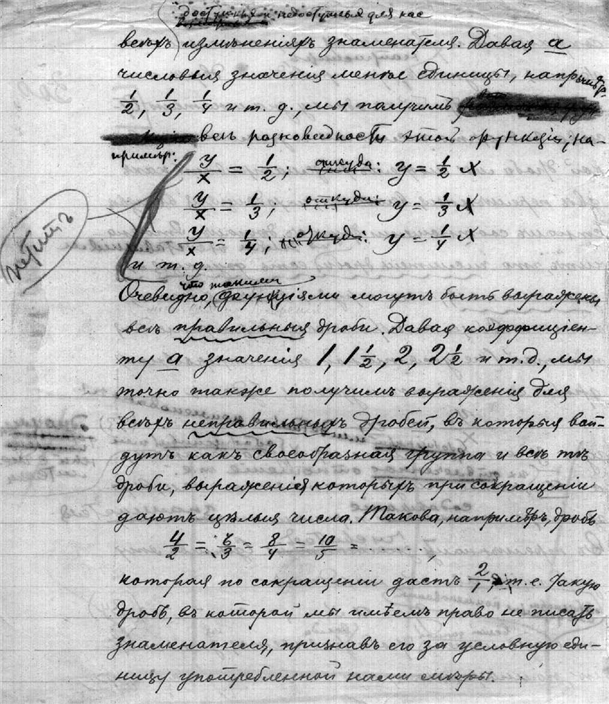 доступныя и недоступныя для нас
всѣхъ измѣненіяхъ знаменателя. Давая a
числовыя значенія менѣе единицы, напримѣр.
1/2, 1/3, 1/4 и т. д., мы получимъ
всѣ разновидности этой функціи, на-
примѣр:
y/x = 1/2; откуда: y = 1/2 x
y/x = 1/3; откуда: y = 1/3 x
y/x = 1/4; откуда: y = 1/4 x
и т. д.
петитъ
что такими
Очевидно, функціями могутъ быть выражены
всѣ правильныя дроби. Давая коэффиціен-
ту a значенія 1, 1 1/2, 2, 2 1/2 и т.д., мы
точно также получимъ выраженія для
всѣхъ неправильныхъ дробей, въ которыя вой-
дутъ какъ своеобразная группа и всѣ тѣ
дроби, выраженія которыхъ при сокращеніи
даютъ цѣлыя числа. Такова, напримѣръ, дробь
4/2 = 6/3 = 8/4 = 10/5 = ......,
которая по сокращеніи дастъ 2/1, т.е. такую
дробь, въ которой мы имѣемъ право не писать
знаменателя, признавъ его за условную еди-
ницу употребленной нами мѣры.